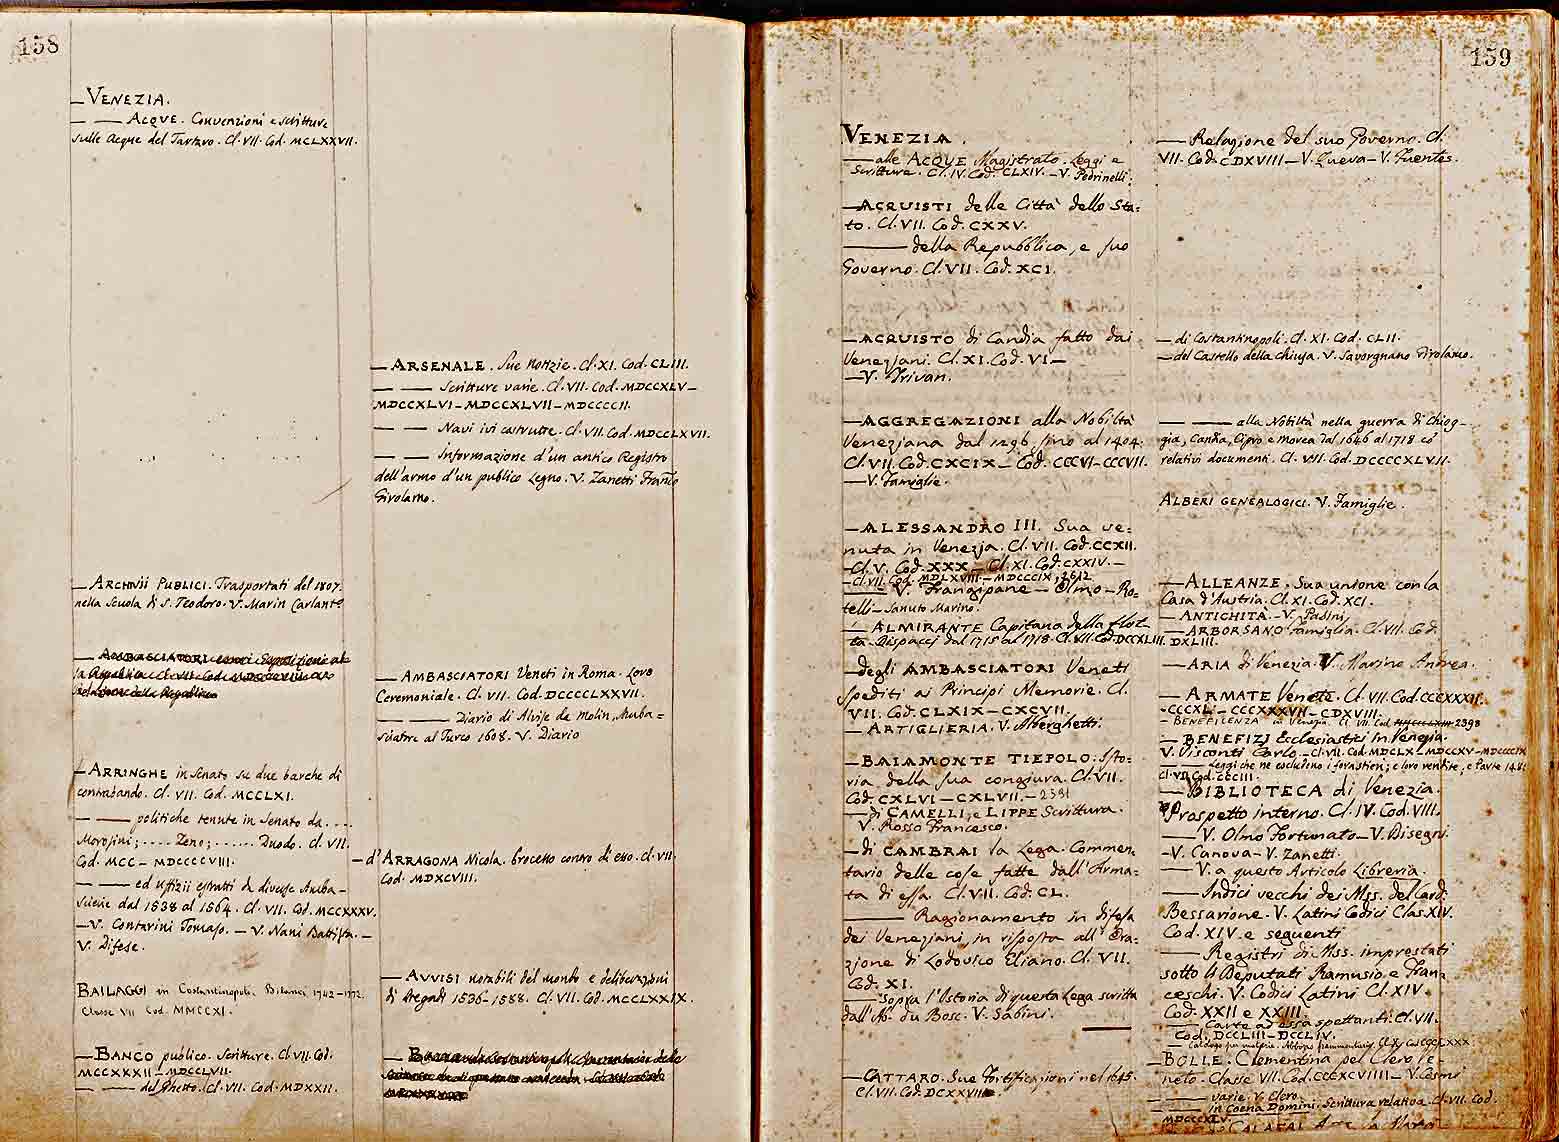 158
— VENEZIA.
— — ACQUE. Convenzioni e scritture
sulle Acque del Tartaro. Cl. VII. Cod. MCLXXVII.
— ARCHIVII PUBLICI. Trasportati del 1807.
nella Scuola di S. Teodoro. V. Marin Carlant°
— AMBASCIATORI
— ARRINGHE in Senato su due barche di
contrabando. Cl. VII. Cod. MCCLXI.
— — politiche tenute in Senato da....
Morosini; .... Zeno; ..... Duodo. Cl. VII.
Cod. MCC — MDCCCCVIII.
— — ed uffizii estratti da diverse Amba-
scierie dal 1538 al 1564. Cl. VII. Cod. MCCXXXV.
— V. Contarini Tomaso. — V. Nani Battista. —
V. Difese.
BAILAGGI in Costantinopoli. Bilanci 1742-1772.
Classe VII Cod. MMCCXI.
— BANCO publico. Scritture. Cl. VII. Cod.
MCCXXXII — MDCCLVII.
— — del Ghetto. Cl. VII. Cod. MDXXII.
— ARSENALE. Sue Notizie. Cl. XI. Cod. CLIII.
— — Scritture varie. Cl. VII. Cod. MDCCXLV —
MDCCXLVI — MDCCXLVII — MDCCCCII.
— — Navi ivi costrutte. Cl. VII. Cod. MDCCLXVII.
— — Informazione d'un antico Registro
dell'armo d'un publico Legno. V. Zanetti Franc°
Girolamo.
— AMBASCIATORI Veneti in Roma. Loro
Ceremoniale. Cl. VII. Cod. DCCCCLXXVII.
— — Diario di Alvise da Molin, Amba=
sciatore al Turco 1608. V. Diario
— d'ARRAGONA Nicola. Processo contro di esso. Cl. VII.
Cod. MDXCVIII.
— AVVISI notabili del mondo e deliberazioni
di Pregadi 1536-1588. Cl. VII. Cod. MCCLXXIX.
159
VENEZIA.
— alle ACQUE Magistrato. Leggi e
Scritture. Cl. IV. Cod. CLXIV. — V. Pedrinelli.
— ACQUISTI delle Città dello Sta=
to. Cl. VII. Cod. CXXV.
— della Repubblica, e suo
Governo. Cl. VII. Cod. XCI.
— ACQUISTO di Candia fatto dai
Veneziani. Cl. XI. Cod. VI —
— V. Trivan.
— AGGREGAZIONI alla Nobiltà
Veneziana dal 1296. sino al 1404.
Cl. VII. Cod. CXCIX — Cod. CCCVI — CCCVII.
— V. Famiglie.
— ALESSANDRO III. Sua ve=
nuta in Venezia. Cl. VII. Cod. CCXII.
— Cl. V. Cod. XXX — Cl. XI. Cod. CXXIV. —
— Cl. VII. Cod. MDLXVIII — MDCCCIX, 2612
— V. Frangipane — Olmo — Ro=
telli — Sanuto Marino.
— ALMIRANTE Capitana della flot
ta. Dispacci dal 1715 al 1718. Cl. VII. Cod. DCCXLIII. DXLIII.
— degli AMBASCIATORI Veneti
spediti ai Principi Memorie. Cl.
VII. Cod. CLXIX — CXCVII.
— ARTIGLIERIA. V. Alberghetti.
— BAIAMONTE TIEPOLO. Isto=
ria della sua congiura. Cl. VII.
Cod. CXLVI — CXLVII. — 2391
— di CAMELLI, e LIPPE Scrittura.
V. Rosso Francesco.
— di CAMBRAI la Lega. Commen=
tario delle cose fatte dall'Arma=
ta di essa. Cl. VII. Cod. CL.
— Ragionamento in difesa
dei Veneziani, in risposta all'Ora=
zione di Lodovico Eliano. Cl. VII.
Cod. XI.
— Sopra l'Istoria di questa Lega scritta
dall'Ab. du Bosc. V. Sabini.
— CATTARO. Sue Fortificazioni nel 1645.
Cl. VII. Cod. DCXXVII.
— Relazione del suo Governo. Cl.
VII. Cod. CDXVIII — V. Queva — V. Fuentes.
— di Costantinopoli. Cl. XI. Cod. CLII.
— del Castello della Chiusa. V. Savorgnano Girolamo.
— alla Nobiltà nella guerra di Chiog-
gia, Candia, Cipro e Morea dal 1646 al 1718 co'
relativi documenti. Cl. VII. Cod. DCCCCXLVII.
ALBERI GENEALOGICI. V. Famiglie.
— ALLEANZE. Sua unione con la
Casa d'Austria. Cl. XI. Cod. XCI.
— ANTICHITÀ. — V. Pasini
— ARBORSANO famiglia. Cl. VII. Cod.
— ARIA di Venezia. V. Marino Andrea.
— ARMATE Venete. Cl. VII. Cod. CCCXXXII.
— CCCXL — CCCXXXVII — CDXVIII.
— BENEFICENZA in Venezia. Cl. VII. Cod. 2398
— BENEFIZJ Ecclesiastici in Venezia.
V. Visconti Carlo. — Cl. VII. Cod. MDCLX — MDCCXV — MDCCCCIX
— Leggi che ne escludono i forastieri; e loro vendite, e Parte 148
Cl. VII. Cod. CCCIII.
— BIBLIOTECA di Venezia.
Prospetto interno. Cl. IV. Cod. VIII.
— V. Olmo Fortunato — V. Disegni
— V. Canova — V. Zanetti.
— V. a questo Articolo Libreria.
— Indici vecchi dei Mss. del Card.
Bessarione. V. Latini Codici Clas. XIV.
Cod. XIV. e seguenti
— Registri di Mss. imprestati
sotto li Deputati Ramusio e Fran=
ceschi. V. Codici Latini Cl. XIV.
Cod. XXII e XXIII.
— Carte ad essa spettanti. Cl. VII.
Cod. DCCLIII — DCCLIV.
— Catalogo per materie. Cl. X
— BOLLE. Clementina pel Clero Ve=
neto. Classe VII. Cod. CCCXCVIIII — V. Cosmi
— varie. V. Clero.
— in Coena Domini. Scrittura relativa. Cl. VII. Cod.
MDCCCXLV.